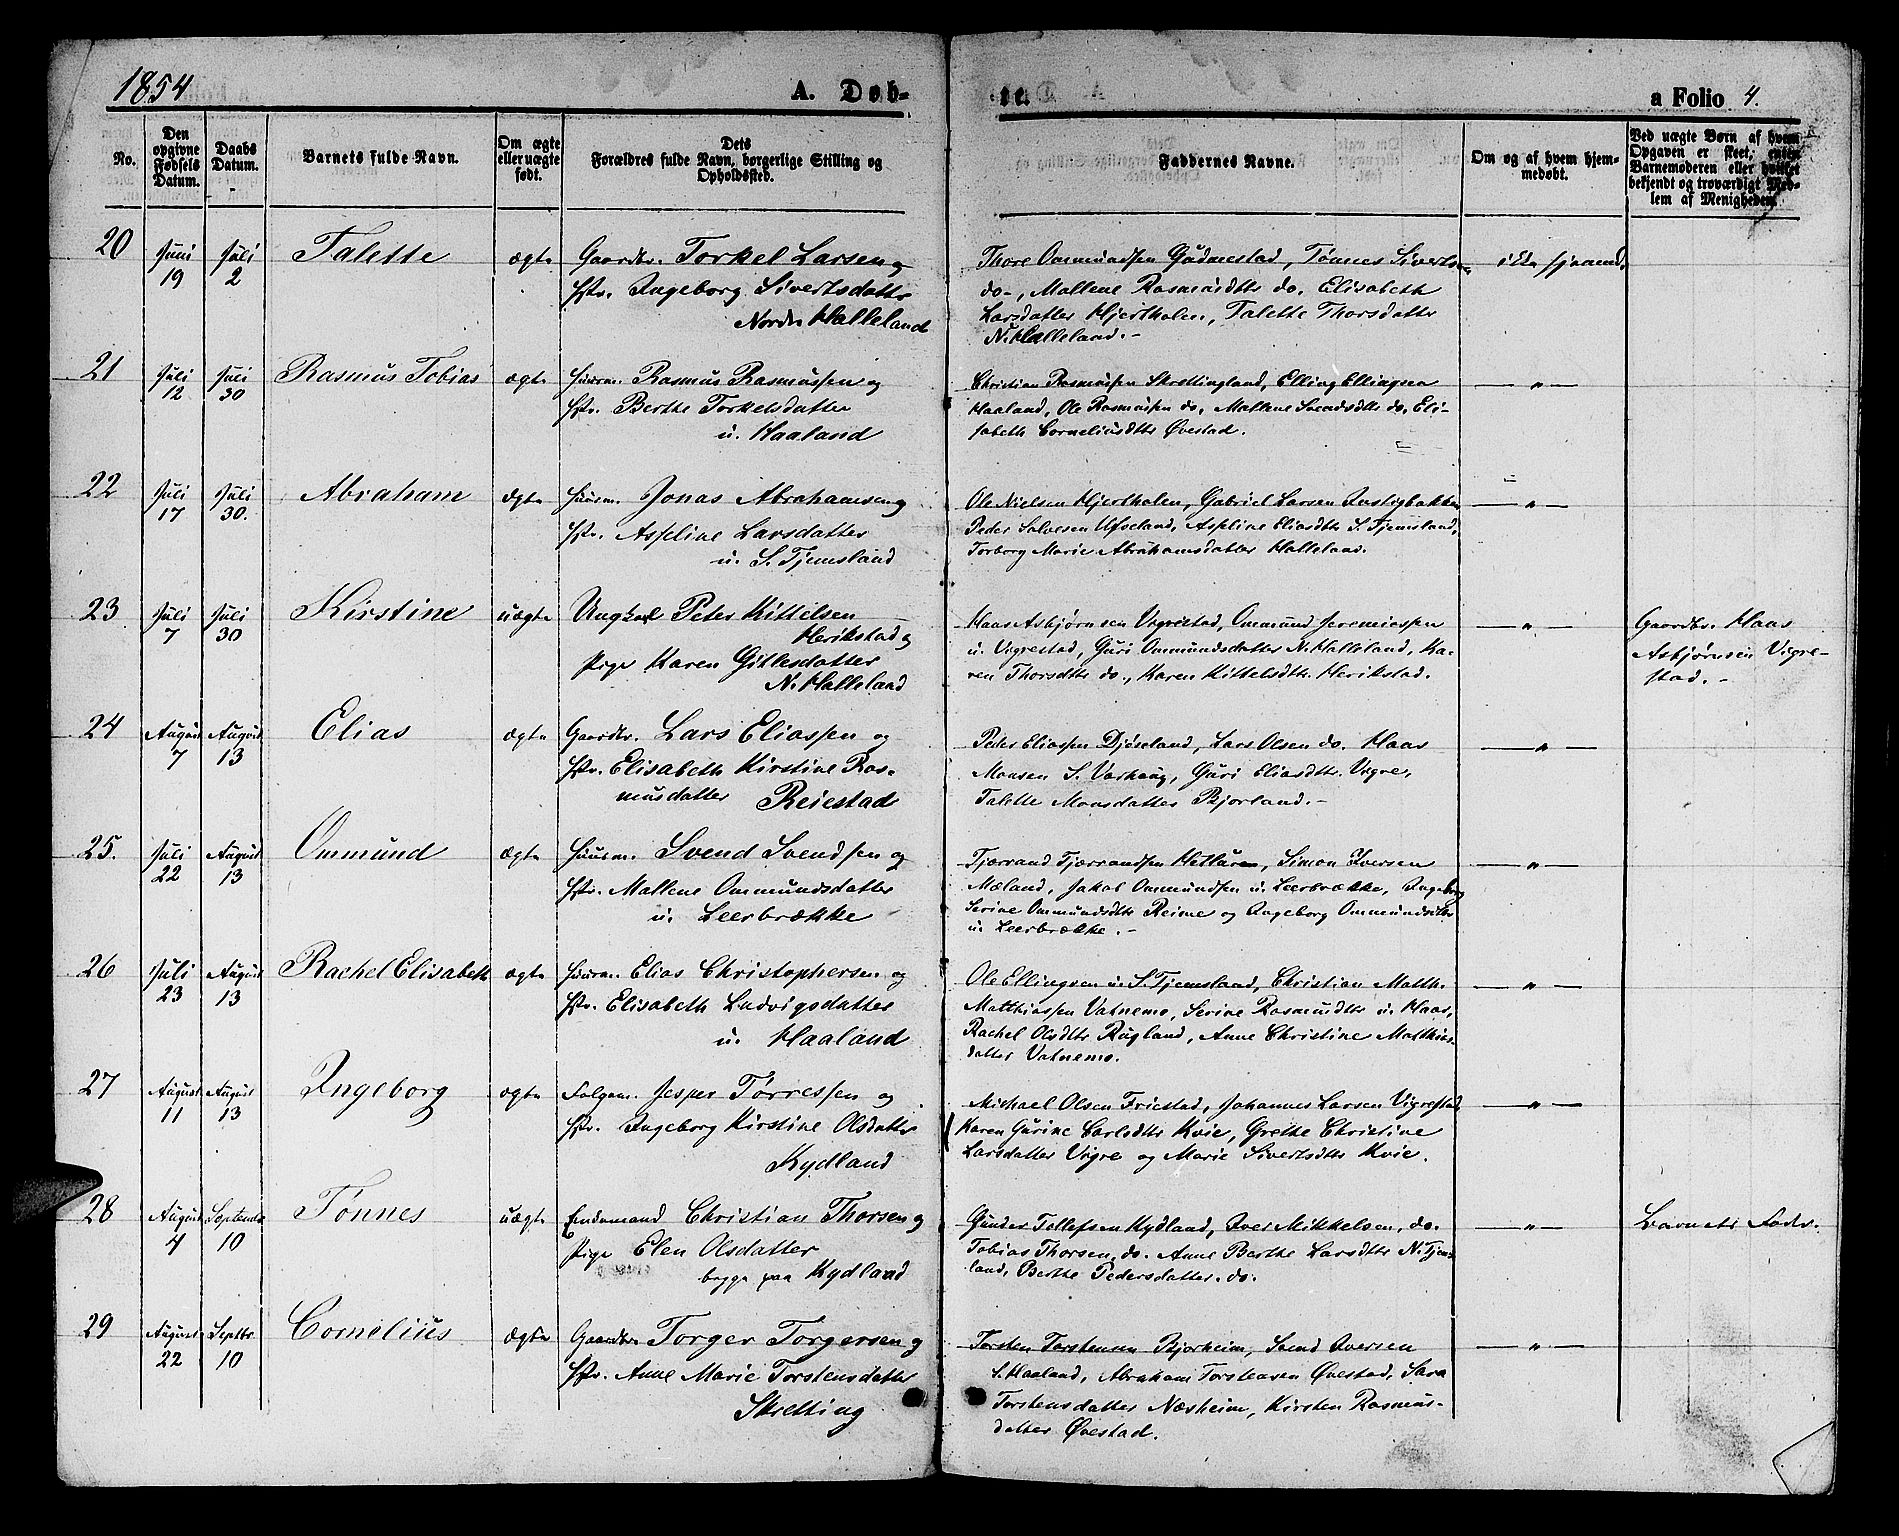 1854
A. Døb-
te.
a Folio 4.
No.
Den opgivne Fødsels Datum.
Daabs Datum.
Barnets fulde Navn.
Om ægte eller uægte født.
Dets Forældres fulde Navn, borgerlige Stilling og Opholdssted.
Faddernes Navne.
Om og af hvem hjemmedøbt.
Ved uægte Børn af hvem Opgaven er skeet, enten Barnemoderen eller hvilket bekjendt og troværdigt Medlem af Menigheden.
20 Juni 19 Juli 2 Talette ægte Gaardbr. Torkel Larsen og
Hstr. Ingeborg Sivertsdatter
Nordre Halleland
Thore Ommundsen Gudmestad, Tønnes Sivertsen
do-, Mallene Rasmusdttr do. Elisabeth
Larsdatter Hjertholen, Talette Thorsdatter
N. Halleland.-
ikke hjemmed.
21 Juli 12 Juli 30 Rasmus Tobias ægte Huusm. Rasmus Rasmussen og
Hstr. Berthe Torkelsdatter
u. Haaland
Christian Rasmussen Skrettingland, Elling Ellingsen
Haaland, Ole Rasmussen do, Mallene Svendsdttr do, Eli-
sabeth Corneliusdttr Øvestad.
— " —
22 Juli 17 Juli 30. Abraham ægte Huusm. Jonas Abrahamsen og
Hstr. Asseline Larsdatter
u. S. Tjemsland
Ole Nielsen Hjertholen, Gabriel Larsen
Peder Salvesen Ueland, Asseline Eliasdttr S. Tjemsland,
Torborg Marie Abrahamsdatter Halleland.
— " —
23 Juli 7 Juli 30 Kirstine uægte Ungkarl Peter Kittelsen
Herikstad og
Pige Karen Gitlesdatter
N. Halleland
Haas Asbjørnsen Vigrestad, Ommund Jeremiassen
u. Vigrestad, Guri Ommundsdatter N. Halleland, Ka-
ren Thorsdttr do., Karen Kittelsdttr. Herikstad.
— " —
Gaardbr. Haas
Asbjørnsen Vigre-
stad.-
24 August 7 August 13 Elias ægte Gaardbr. Lars Eliassen og
Hstr. Elisabeth Kirstine Ras-
musdatter Reiestad
Peter Eliassen Djøseland, Lars Olsen do. Haas
Monsen S. Varhaug, Guri Eliasdttr. Vigre,
Talette Monsdatter Bjorland.-
— " —
25. Juli 22 August 13 Ommund ægte Huusm. Svend Svendsen og
Hstr. Mallene Ommundsdatter
u. Leerbrække
Tjærrand Tjærrandsen Hetland, Simon Iversen
Mæland, Jakob Ommundsen u. Leerbrække, Ingeborg
Serine Ommundsdttr Reime og Ingeborg Ommundsdttr
u. Leerbrække.-
— " —
26 Juli 23 August 13 Rachel Elisabeth ægte Huusm. Elias Christophersen og
Hstr. Elisabeth Ludvigsdatter
u. Haaland
Ole Ellingsen u. S. Tjemsland, Christian Matth.
Matthiassen Vatnemo, Serine Rasmusdttr u. Haas,
Rachel Olsdttr Rugland, Anne Christine Matthias-
datter Vatnemo.
— " —
27 August 11 August 13 Ingeborg ægte Folgem. Jesper Tørressen og
Hstr. Ingeborg Kirstine Olsdatter
Kydland
Michael Olsen Friestad, Johannes Larsen Vigrestad,
Karen Gurine Carlsdttr Kvie, Grethe Christine
Larsdatter Vigre og Marie Sivertsdttr Kvie.
— " —
28 August 4 Septembr 10 Tønnes uægte Enkemand Christian Thorsen og
Pige Elen Olsdatter
begge paa Kydland
Gunder Tollefsen Kydland, Iver Mikkelsen, do.
Tobias Thorsen, do. Anne Berthe Larsdttr N. Tjems-
land, Berthe Pedersdatter. do.
— " —
Barnets Fader.
29 August 22 Septbr. 10 Cornelius ægte Gaardbr. Torger Torgersen og
Hstr. Anne Marie Torstensdatter
Skretting
Torsten Torstensen Bjorheim, Svend Iversen
S. Haaland, Abraham Torstensen Øvestad, Sara
Torstensdatter Næsheim, Kirsten Rasmus-
datter Øvestad.
— " —